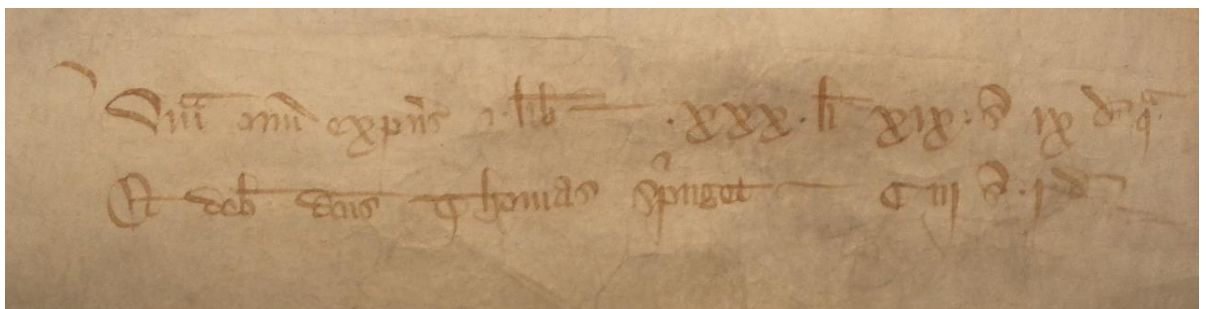 Sum̄a om̄ expn̄s ⁊ lib̄ · xxx · li xix · s̄ ix d q̄ᵃ
Et deb̄ dc̄us Thomas Sp̓inget C iij s̄ · j d̄